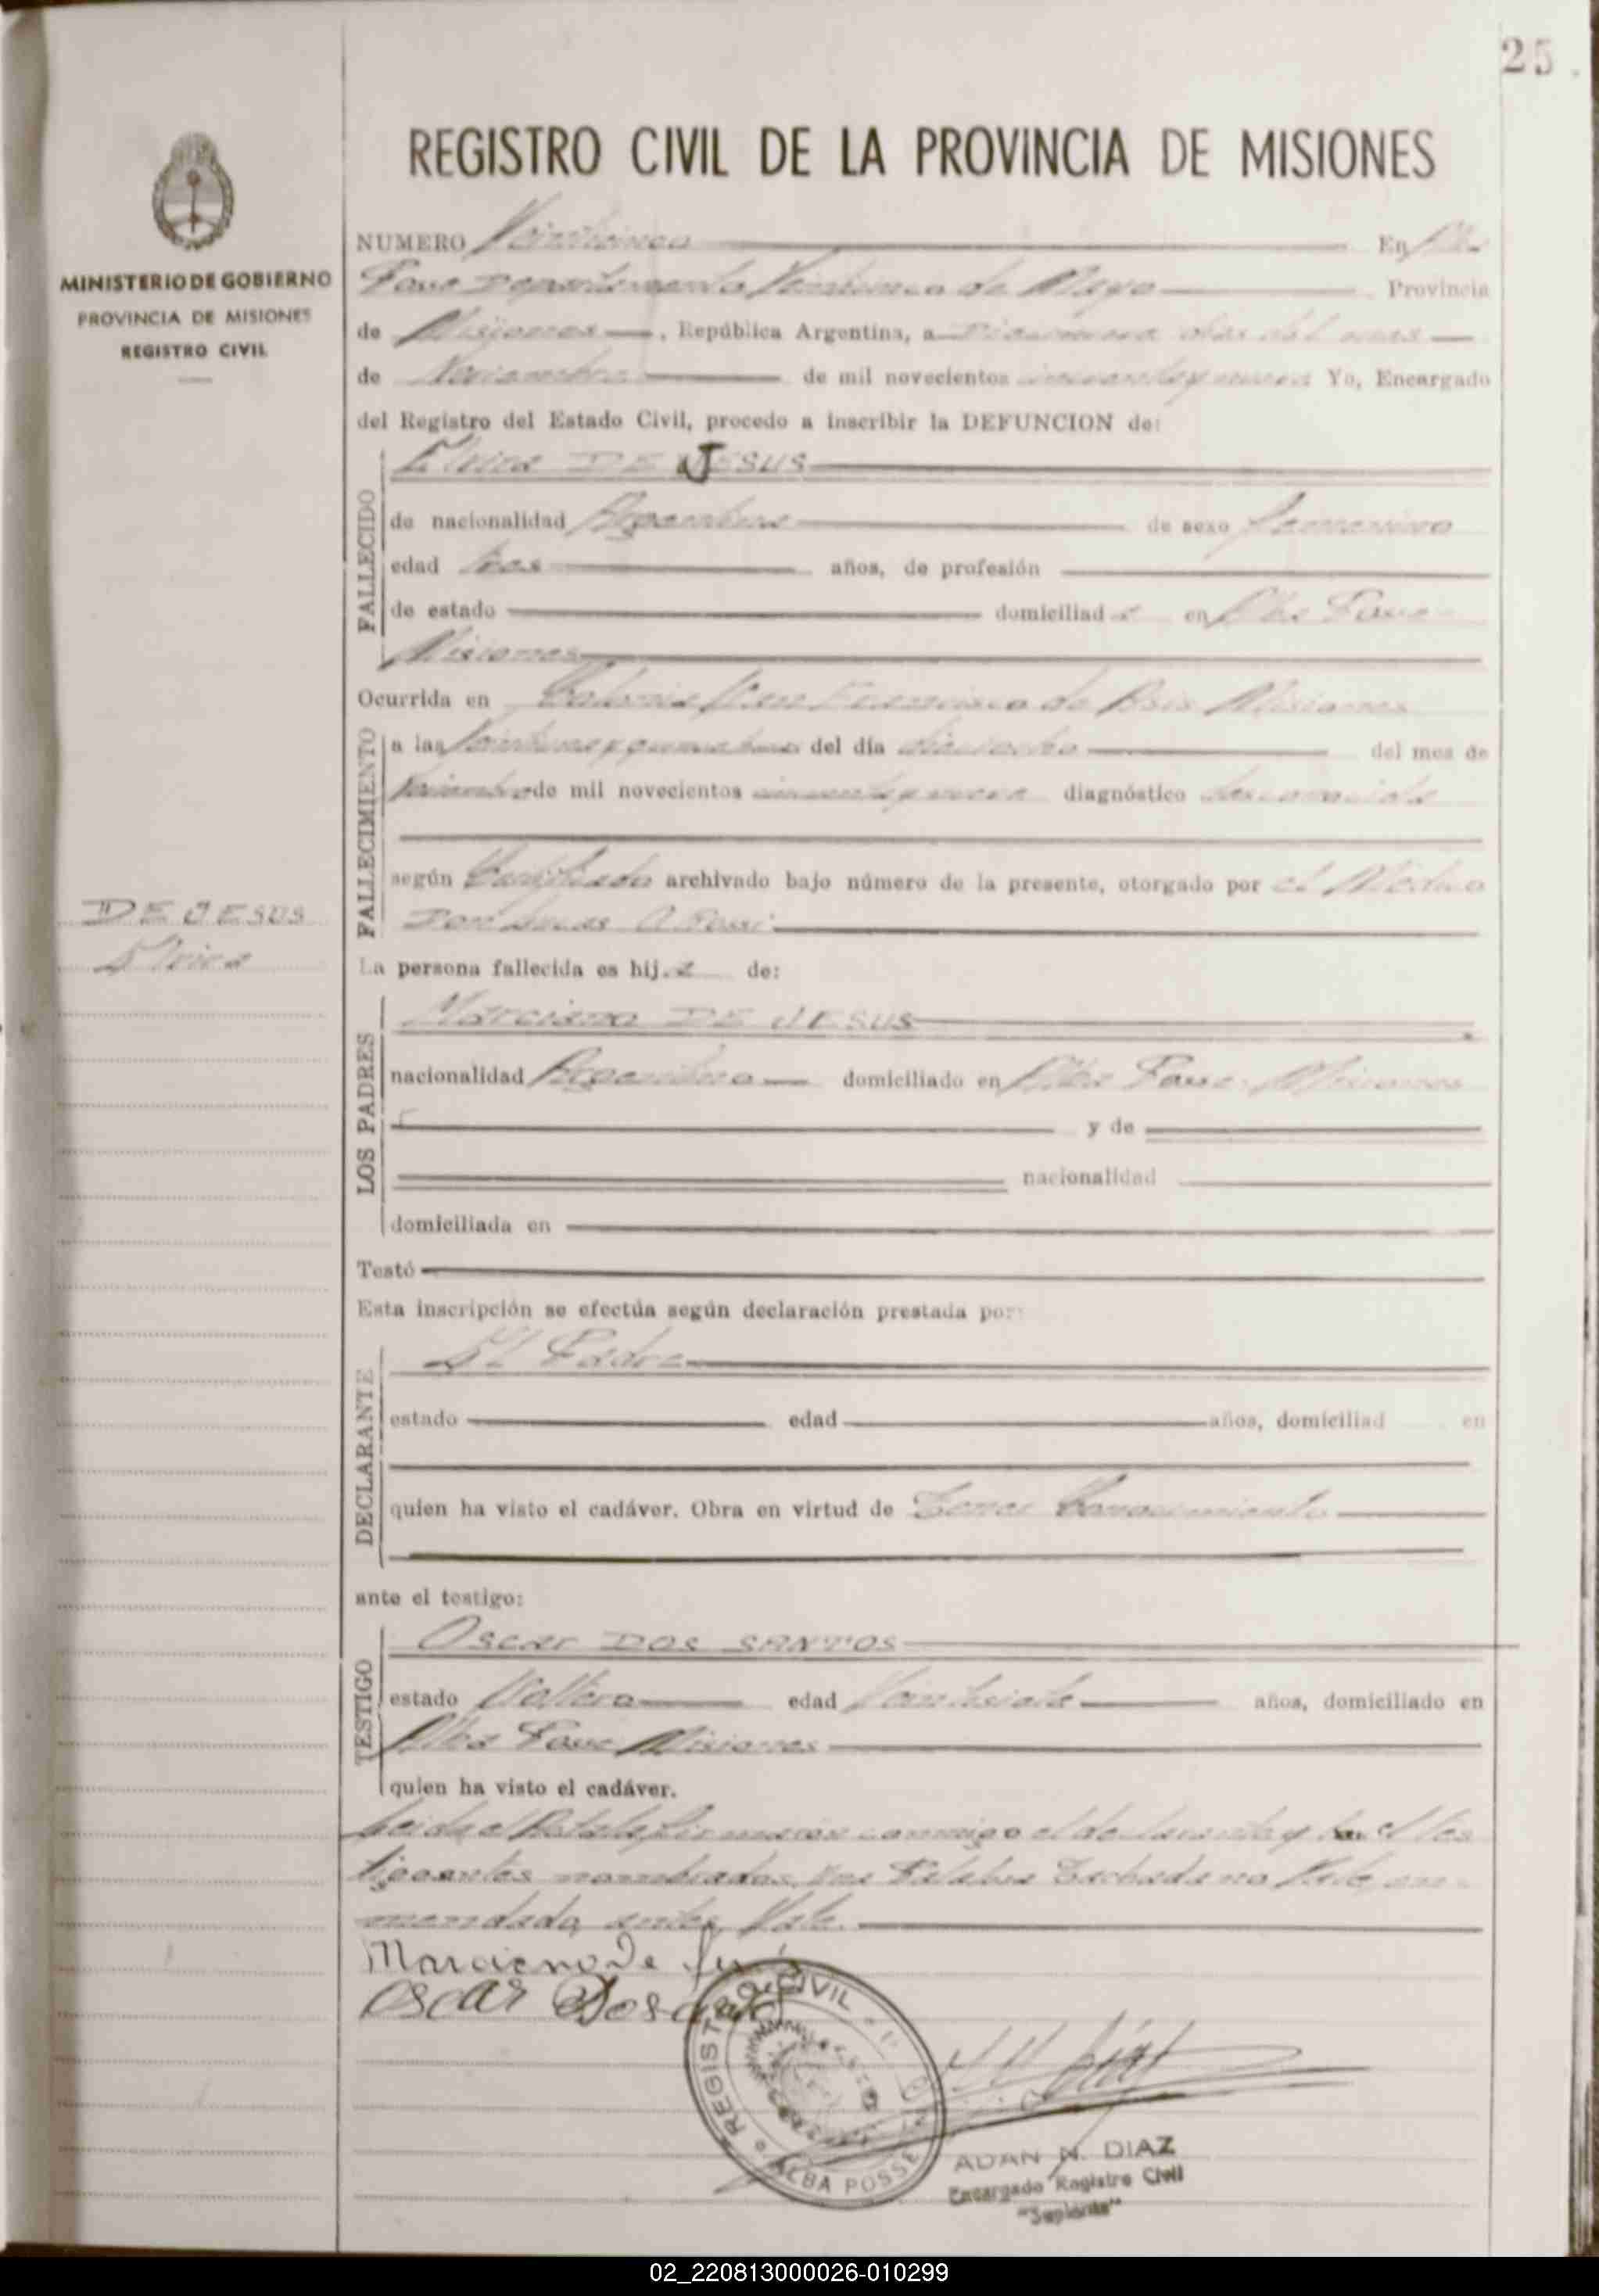 25
REGISTRO CIVIL DE LA PROVINCIA DE MISIONES
MINISTERIO DE GOBIERNO
PROVINCIA DE MISIONES
REGISTRO CIVIL
NUMERO Veinticinco En Alba
Posse Departamento Veinticinco de Mayo Provincia
de Misiones, República Argentina, a Diecinueve dias del mes
de Noviembre de mil novecientos cincuenta y nueve Yo, Encargado
del Registro del Estado Civil, procedo a inscribir la DEFUNCION de:
Elvira DE JESUS
FALLECIDO
de nacionalidad Argentina de sexo Femenino
edad tres años, de profesión
de estado domiciliad a en Alba Posse
Misiones
Ocurrida en Colonia San Francisco de Asis Misiones
FALLECIMIENTO
a las horas del día dieciocho del mes de
Noviembre de mil novecientos cincuenta y nueve diagnóstico desconocida
según Certificado archivado bajo número de la presente, otorgado por el Médico
Don Lucas A.
DE JESUS
Elvira
La persona fallecida es hij a de:
LOS PADRES
Marciano DE JESUS
nacionalidad Argentino domiciliado en Alba Posse Misiones
y de
nacionalidad
domiciliada en
Testó
Esta inscripción se efectúa según declaración prestada por:
DECLARANTE
El Padre
estado edad años, domiciliad en
quien ha visto el cadáver. Obra en virtud de Tener Conocimiento
ante el testigo:
TESTIGO
Oscar DOS SANTOS
estado Soltero edad Veintisiete años, domiciliado en
Alba Posse Misiones
quien ha visto el cadáver.
Leida el Acta la firmaron conmigo el declarante y el tes
tigo antes nombrados. Una Palabra Tachada no Vale, en-
mendada, antes, Vale.
Marcieno De Jesus
OSCAR Dos
REGISTRO CIVIL
ALBA POSSE
ADAN N. DIAZ
Encargado Registro Civil
"Suplente"
02_220813000026-010299